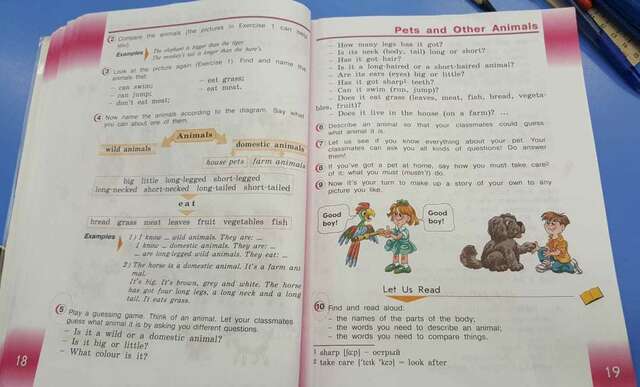 2 Compare the animals (the pictures in Exercise 1 can help
you).
Examples
The elephant is bigger than the tiger.
The monkey's tail is longer than the hare's.
3 Look at the picture again (Exercise 1). Find and name the
animals that:
– can swim;
– can jump;
– don't eat meat;
– eat grass;
– eat meat.
4 Now name the animals according to the diagram. Say what
you can about one of them.
Animals
wild animals
domestic animals
house pets
farm animals
big little long-legged short-legged
long-necked short-necked long-tailed short-tailed
eat
bread grass meat leaves fruit vegetables fish
Examples
1) I know ... wild animals. They are: ...
I know ... domestic animals. They are: ...
... are long-legged wild animals. They eat: ...
2) The horse is a domestic animal. It's a farm ani
mal.
It's big. It's brown, grey and white. The horse
has got four long legs, a long neck and a long
tail. It eats grass.
5 Play a guessing game. Think of an animal. Let your classmates
guess what animal it is by asking you different questions.
– Is it a wild or a domestic animal?
– Is it big or little?
– What colour is it?
18
Pets and Other Animals
– How many legs has it got?
– Is its neck (body, tail) long or short?
– Has it got hair?
– Is it a long-haired or a short-haired animal?
– Are its ears (eyes) big or little?
– Has it got sharp¹ teeth?
– Can it swim (run, jump)?
– Does it eat grass (leaves, meat, fish, bread, vegeta-
bles, fruit)?
– Does it live in the house (on a farm)? ...
6 Describe an animal so that your classmates could guess
what animal it is.
7 Let us see if you know everything about your pet. Your
classmates can ask you all kinds of questions! Do answer
them!
8 If you've got a pet at home, say how you must take care²
of it: what you must (mustn't) do.
9 Now it's your turn to make up a story of your own to any
picture you like.
Good
boy!
Good
boy!
Let Us Read
10 Find and read aloud:
– the names of the parts of the body;
– the words you need to describe an animal;
– the words you need to compare things.
1 sharp [ʃɑ:p] – острый
2 take care ['teɪk 'keə] = look after
19